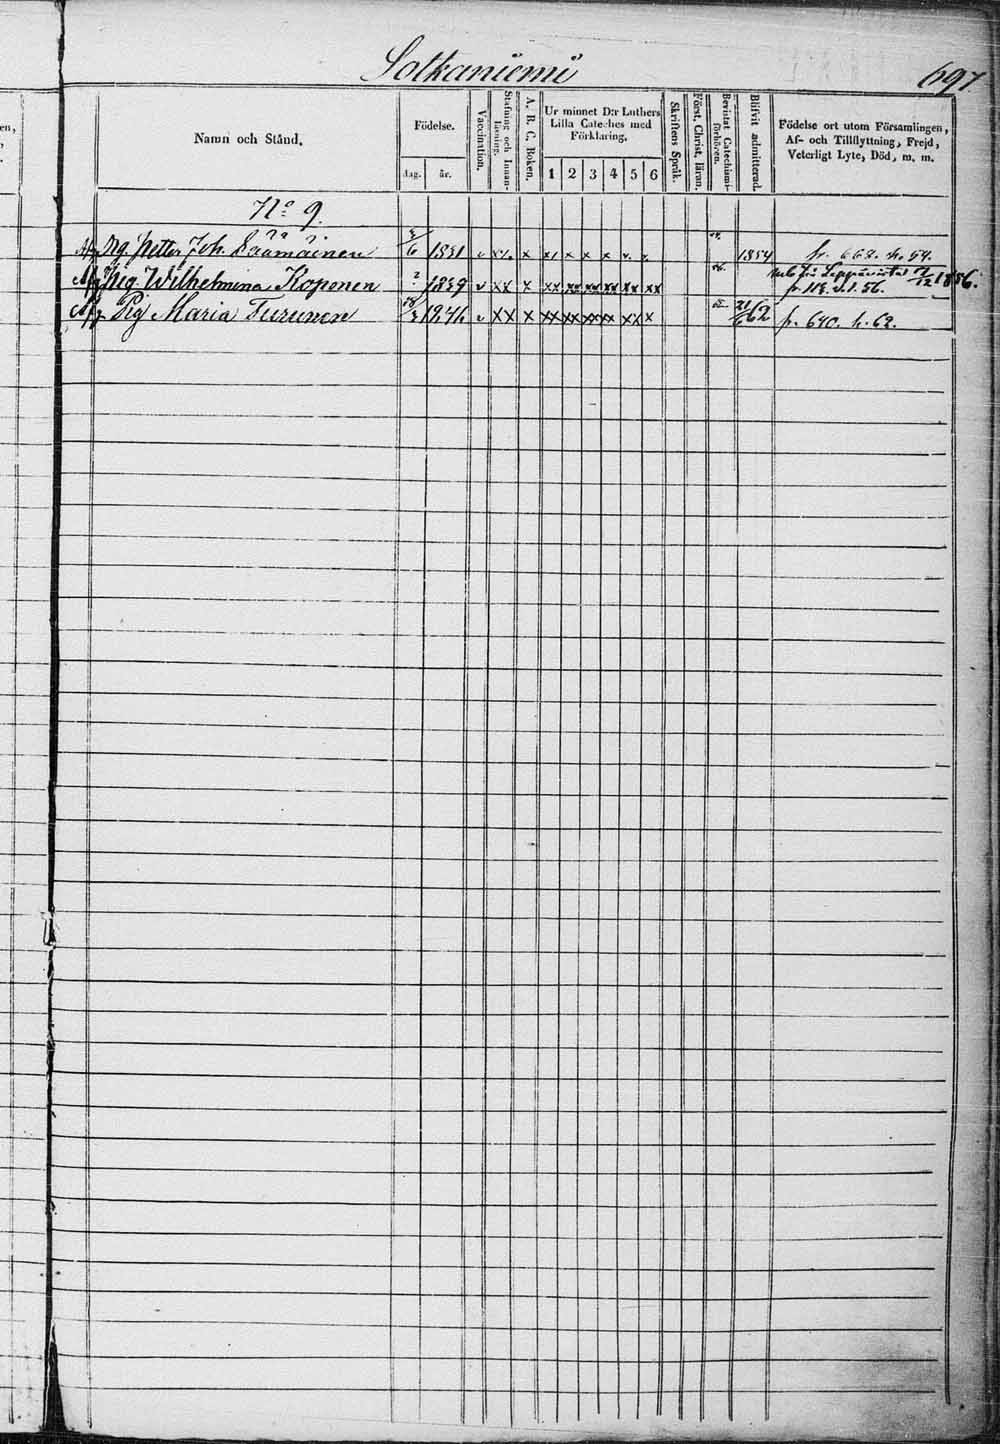 Sotkaniemi 697
Namn och Stånd.
Födelse.
dag. år.
Vaccination.
Stafning och Innanläsning.
A. B. C. Boken.
Ur minnet D:r Luthers Lilla Cateches med Förklaring.
1 2 3 4 5 6
Skriftens Språk.
Först. Christ. läran.
Bevistat Catechismiförhören.
Blifvit admitterad.
Födelse ort utom Församlingen, Af- och Tillflyttning, Frejd, Veterligt Lyte, Död, m. m.
No 9.
Petter Joh. 1831 v x x x x x 1854 p. 662. h. 54.
Wilhelmina Koponen ? 1839 v xx x xx xx xx xx xx xx 1856.
p. 112. 56.
Pig Maria Turunen 1846 v xx x xx xx xx xx xx x 62 p. 640. h. 62.